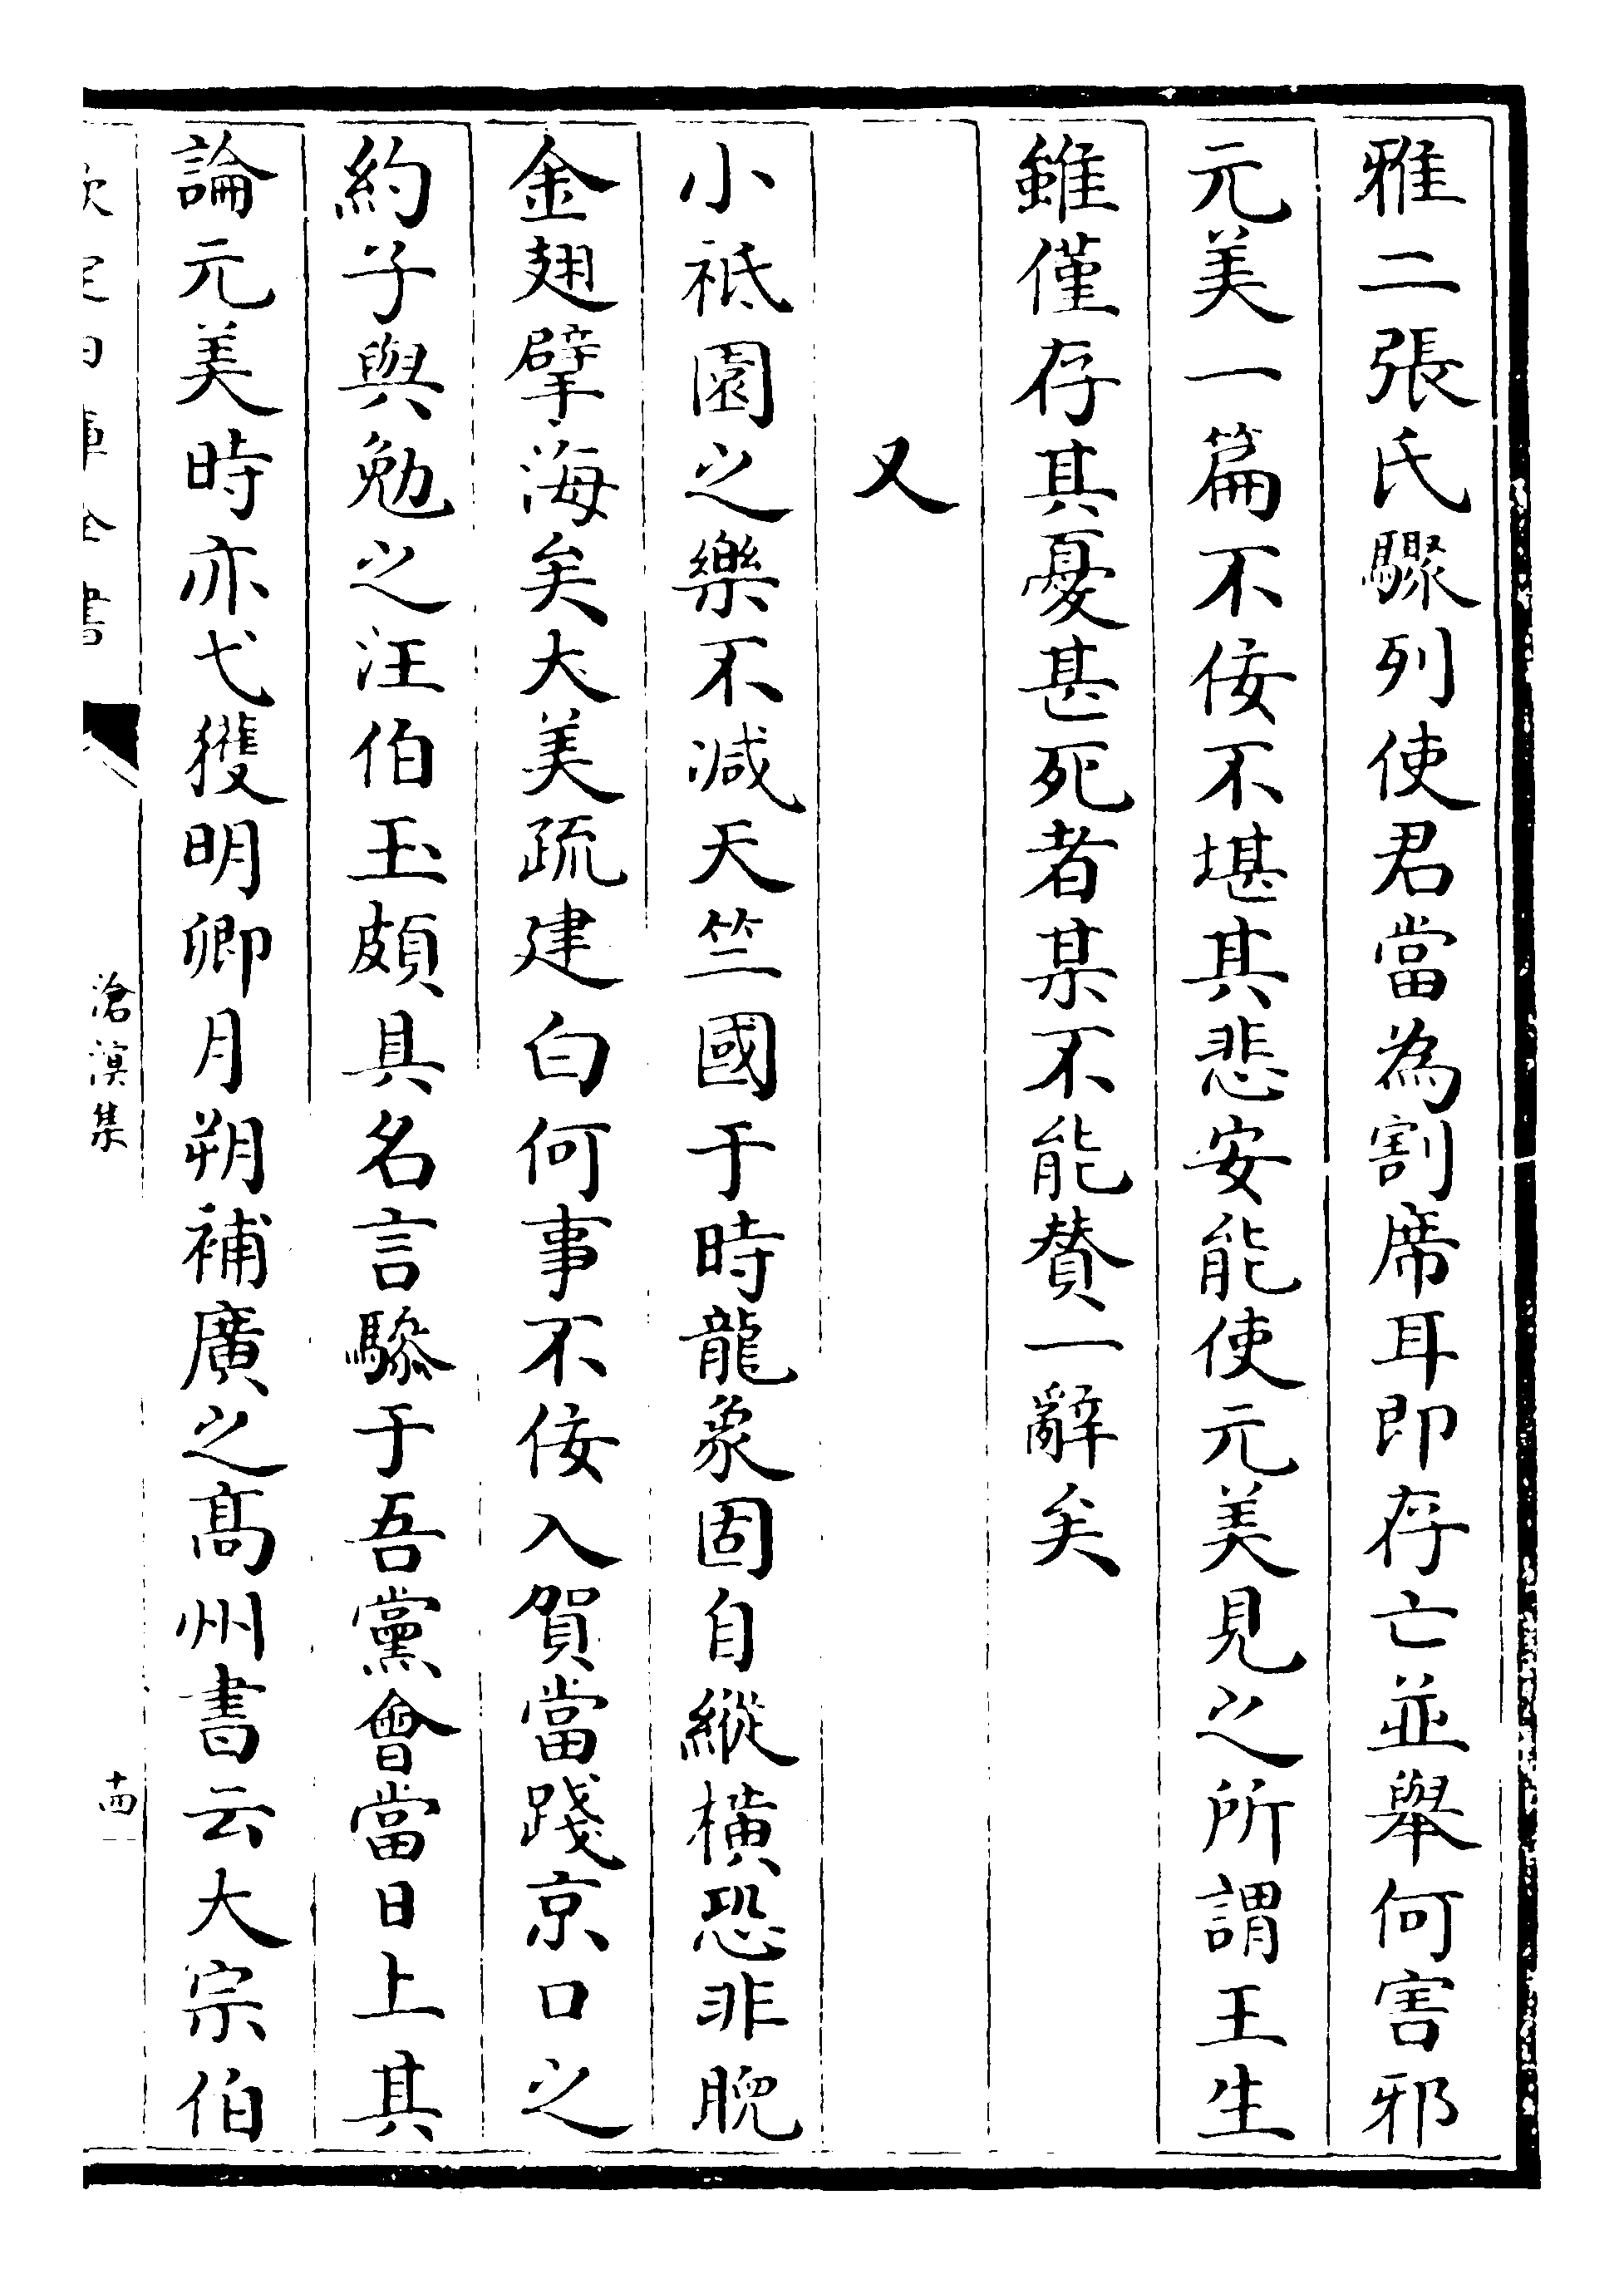 雅二張氏驟列使君當為割席耳即存亡並舉何害邪
元美一篇不佞不堪其悲安能使元美見之所謂王生
雖僅存其憂甚死者某不能賛一辭矣
又
小祇園之樂不减天竺國于時龍象固自縱橫恐非脫
金翅擘海矣大美疏建白何事不佞入賀當踐京口之
約子與勉之汪伯玉頗具名言驂于吾黨會當日上其
論元美時亦弋獲明卿月朔補廣之髙州書云大宗伯
欽定四庫全書
滄溟集
十四